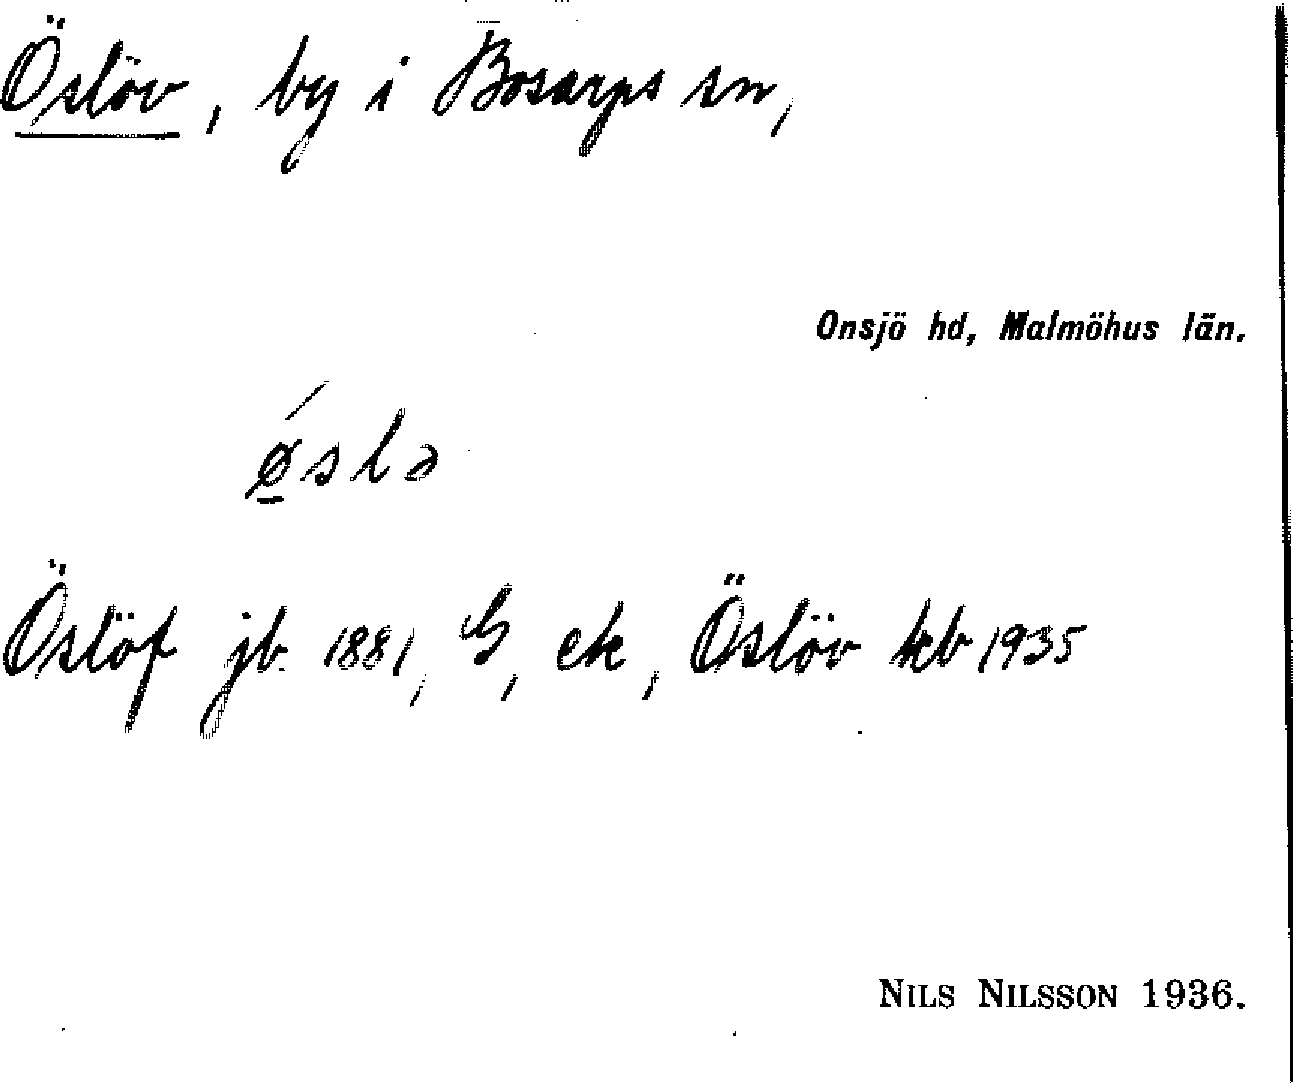 Öslöv, by i Bosarps sn,
Onsjö hd, Malmöhus län.
ǿ̲slə
Öslöf jb. 1881, G, ek, Öslöv kb 1935
NILS NILSSON 1936.